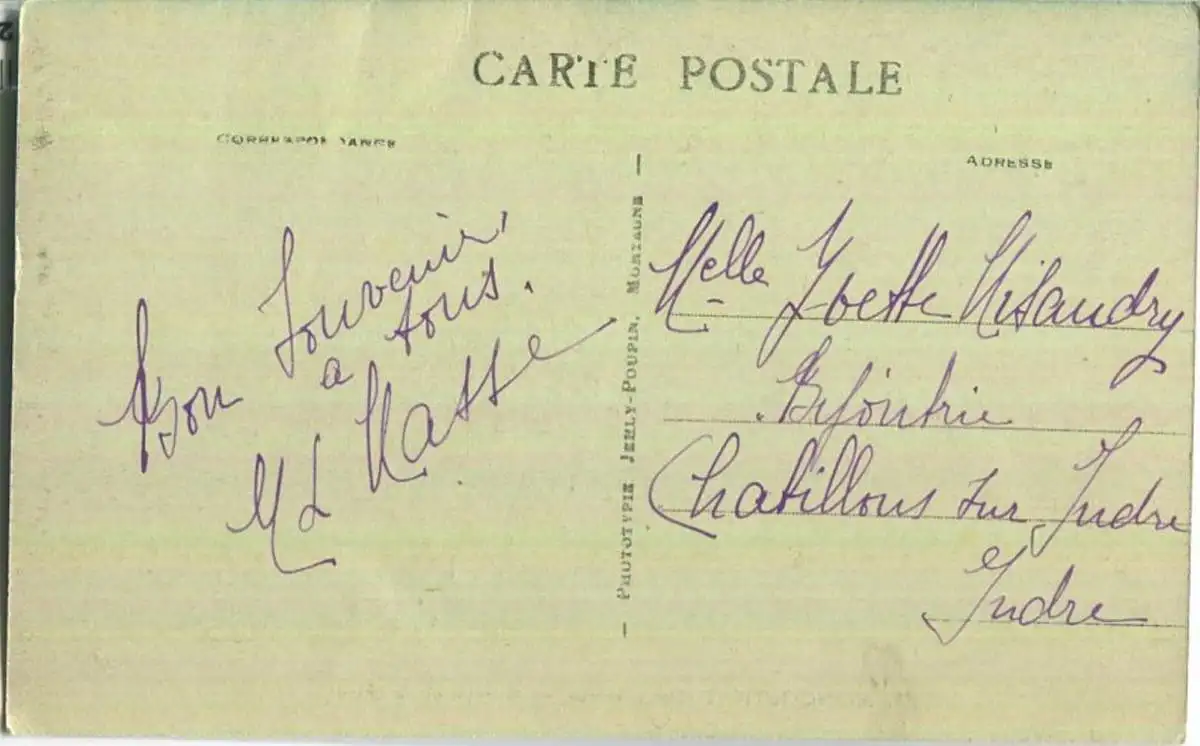 CARTE POSTALE
CORRESPONDANCE
Bon Souvenir,
a tous.
ML Masse
PHOTOTYPIE JEHLY-POUPIN, MORTAGNE
ADRESSE
Melle Yvette Misaudry
Bijoutrie
Chatillons sur Indre
Indre